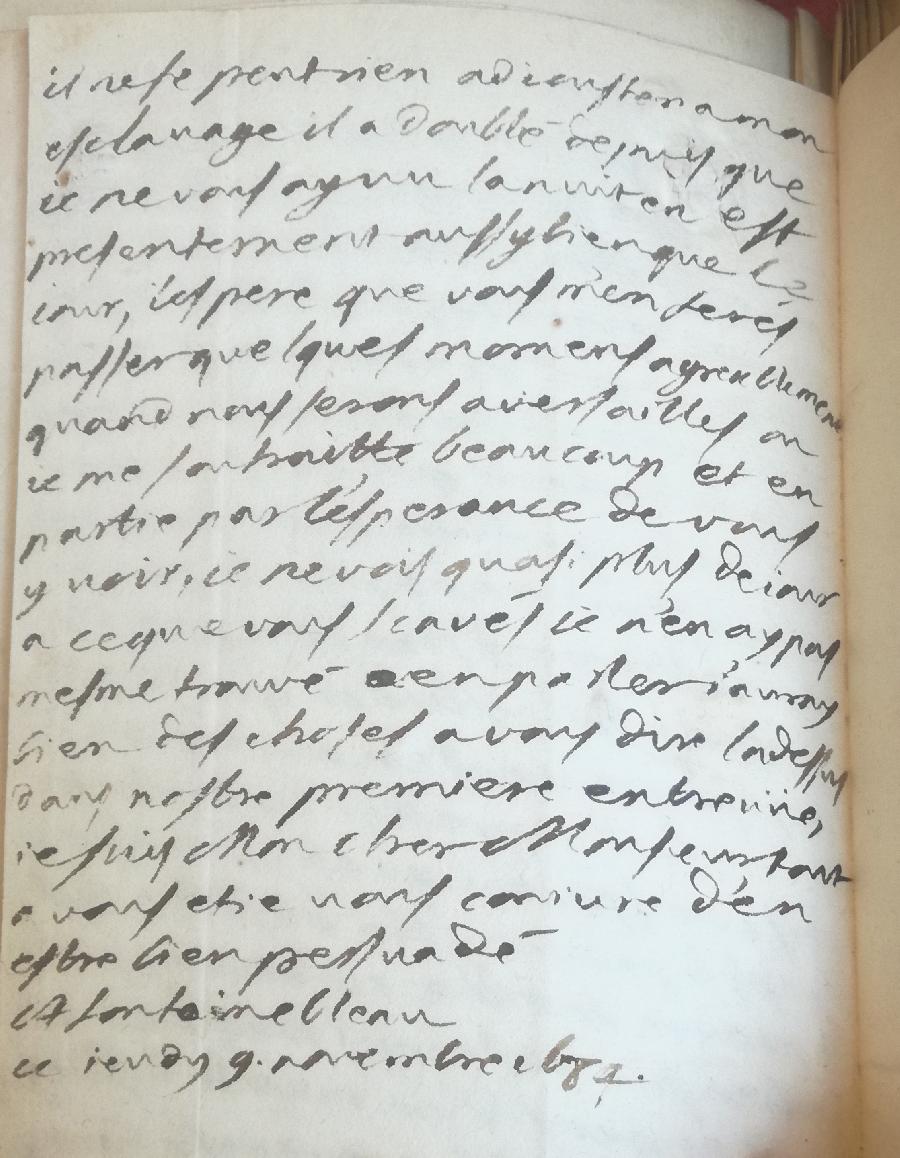 il ne se peut rien adiouster a mon
esclauage il a doublé depuis que
ie ne vous ay vuu la nuit en est
presentement aussy bien que le
iour, i'espere que vous m'en ferés
passer quelques momens agreablement
quand nous serons a versailles ou
ie me souhaitte beaucoup et en
partie par l'esperance de vous
y voir, ie ne vois quasi plus de iour
a ce que vous scavés ie n'en ay pas
mesme trouvé a en parler i'auray
bien des choses a vous dire la dessus
dans nostre premiere entreuüe,
ie suis Mon cher Monsieur tout
a vous et ie vous coniure d'en
estre bien persuadé
A fontainebleau
ce ieudy 9. novembre 1684.